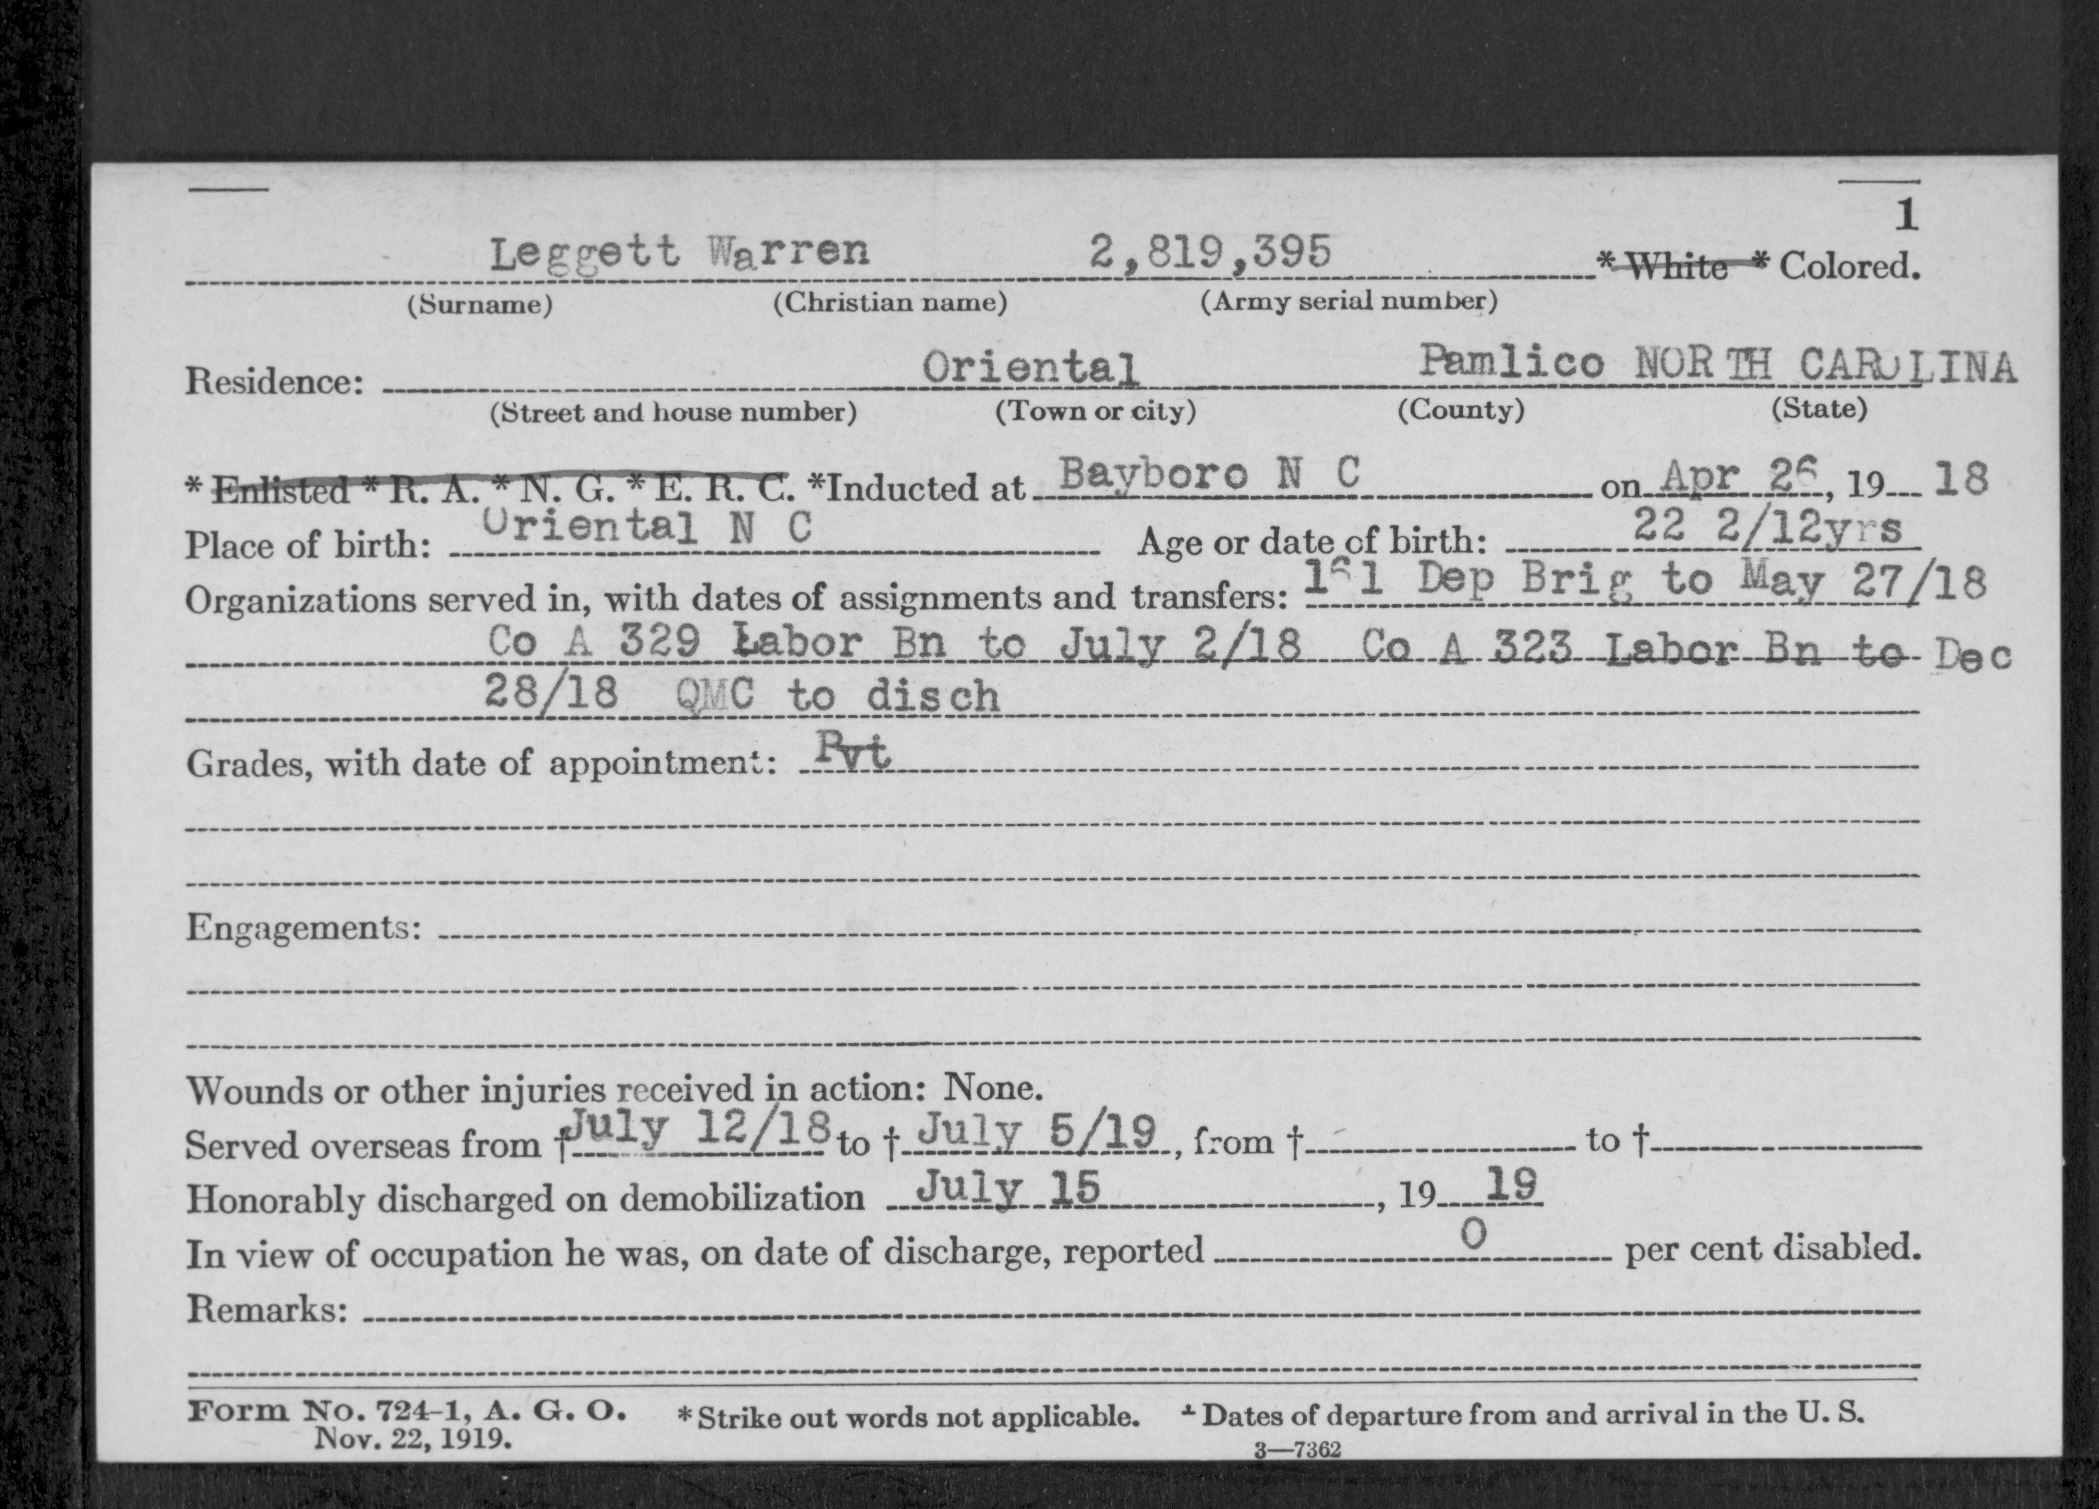 1
Leggett Warren 2,819,395 * White * Colored.
(Surname) (Christian name) (Army serial number)
Residence: Oriental Pamlico NORTH CAROLINA
(Street and house number) (Town or city) (County) (State)
* Enlisted * R. A. * N. G. * E. R. C. *Inducted at Bayboro N C on Apr 26, 19 18
Place of birth: Oriental N C Age or date of birth: 22 2/12yrs
Organizations served in, with dates of assignments and transfers: 161 Dep Brig to May 27/18
Co A 329 Labor Bn to July 2/18 Co A 323 Labor Bn to Dec
28/18 QMC to disch
Grades, with date of appointment: Pvt
Engagements:
Wounds or other injuries received in action: None.
Served overseas from † July 12/18 to † July 5/19, from † to †
Honorably discharged on demobilization July 15, 19 19
In view of occupation he was, on date of discharge, reported 0 per cent disabled.
Remarks:
Form No. 724-1, A. G. O. * Strike out words not applicable. † Dates of departure from and arrival in the U. S.
Nov. 22, 1919. 3—7362